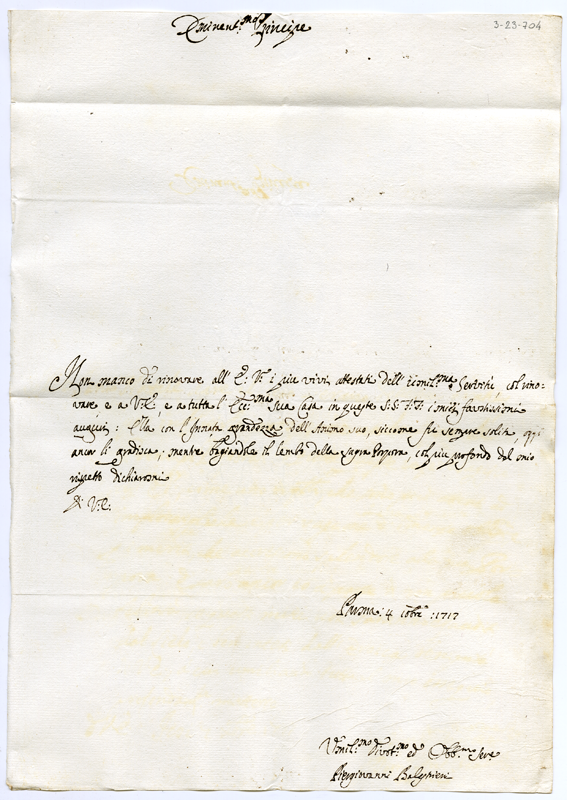 3-23-704
Eminent.mo Principe
Non manco di rinovare all' E.a V.a i piu vivi attestati dell' umil.ma Servitù, col rino-
vare e a V.E. e a tutta l' Ecc.ma Sua Casa in queste S.S. F.F. i miei faustissimi
auguri: Ella con l' Innata grandezza dell' Animo suo, siccome fù sempre solita, qui
ancor li gradisca; mentre bagiandole il lembo della Sagra Porpora, col piu profondo del mio
rispetto dichiaromi
Di V.E.
Parma: 4 Xbre :1717
Umil.mo Divot.mo ed Obb.mo Serv.e
Piergiovanni Balestrieri